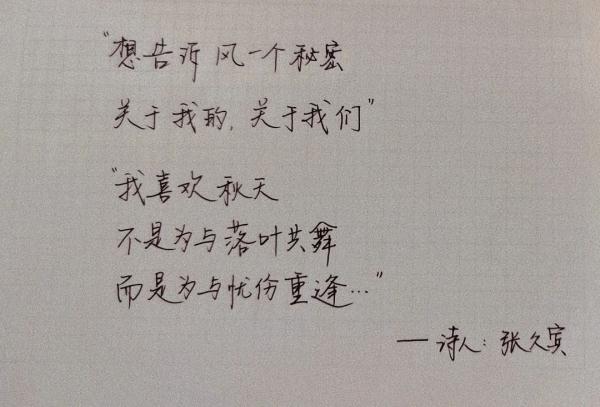 “想告诉风一个秘密
关于我的, 关于我们”
“我喜欢秋天
不是为与落叶共舞
而是为与忧伤重逢…”
— 诗人: 张久宾